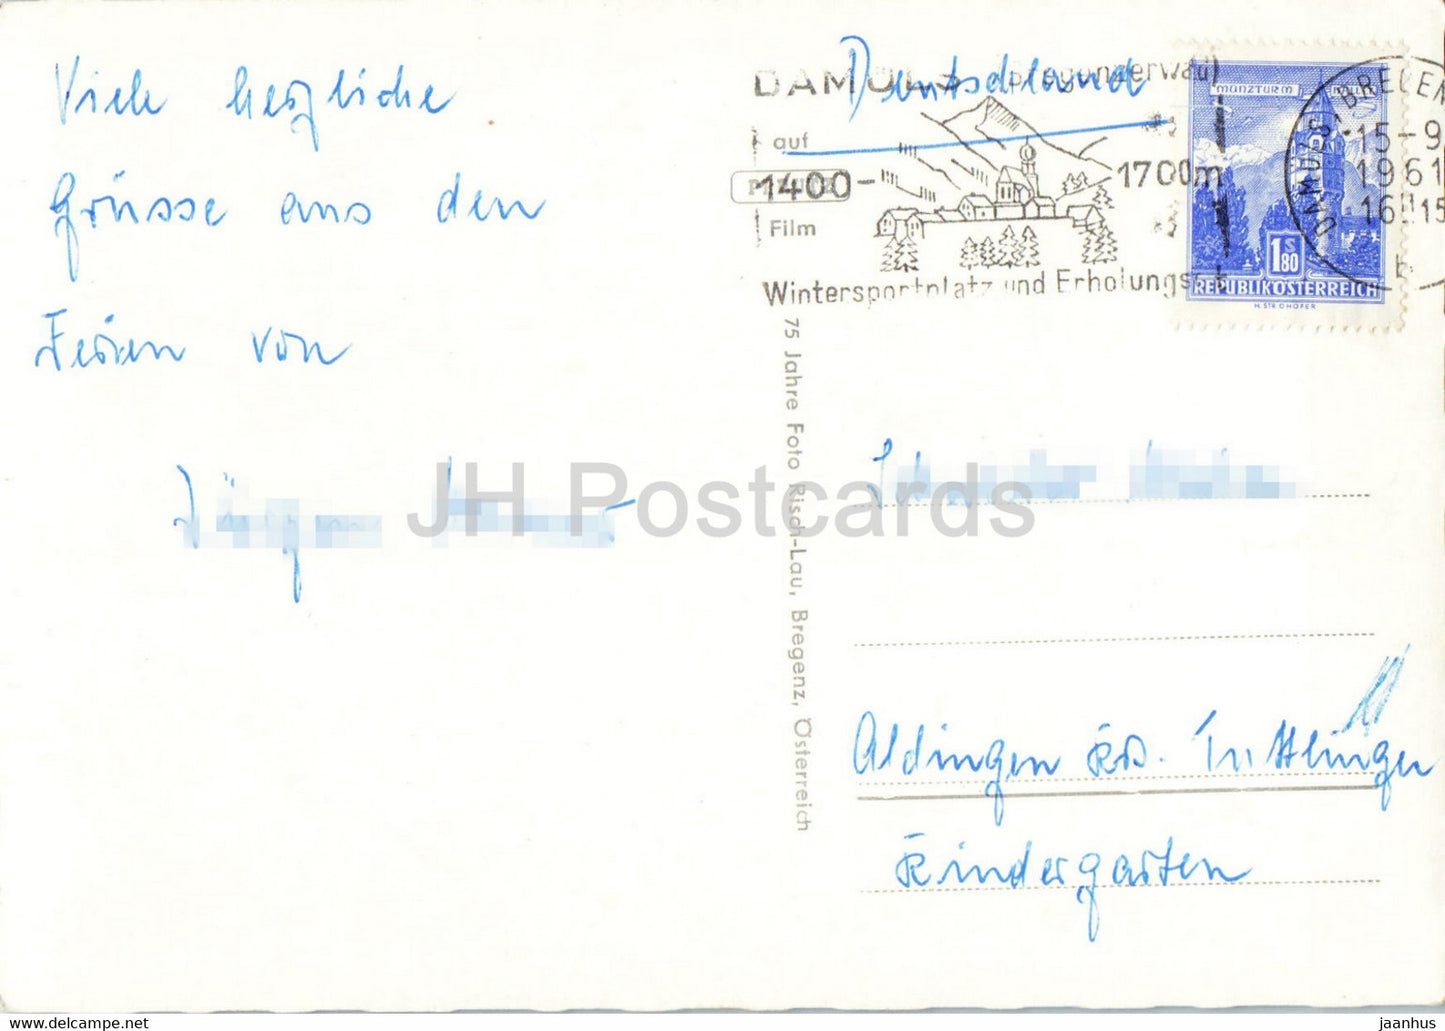 Viele herzliche
Grüsse aus den
Ferien von
Jürgen
DAMÜLS (Bregenzerwald)
Deutschland
auf
1400- 1700m
Film
Wintersportplatz und Erholungs
MÜNZTURM
1 S 80
REPUBLIK ÖSTERREICH
H. STROHOFER
DAMÜLS, BREGEN
15-9
1961
16 15
b
75 Jahre Foto Risch-Lau, Bregenz, Österreich
JH Postcards
Aldingen Krs. Tuttlingen
Kindergarten
jaanhus | https://www.ebay.com/usr/jaanhus